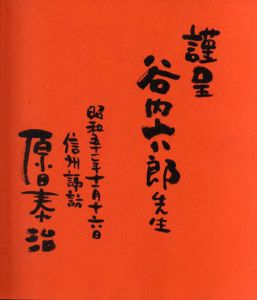 謹呈
谷内六郎先生
昭和五十二年十一月十六日
信州諏訪
原田泰治